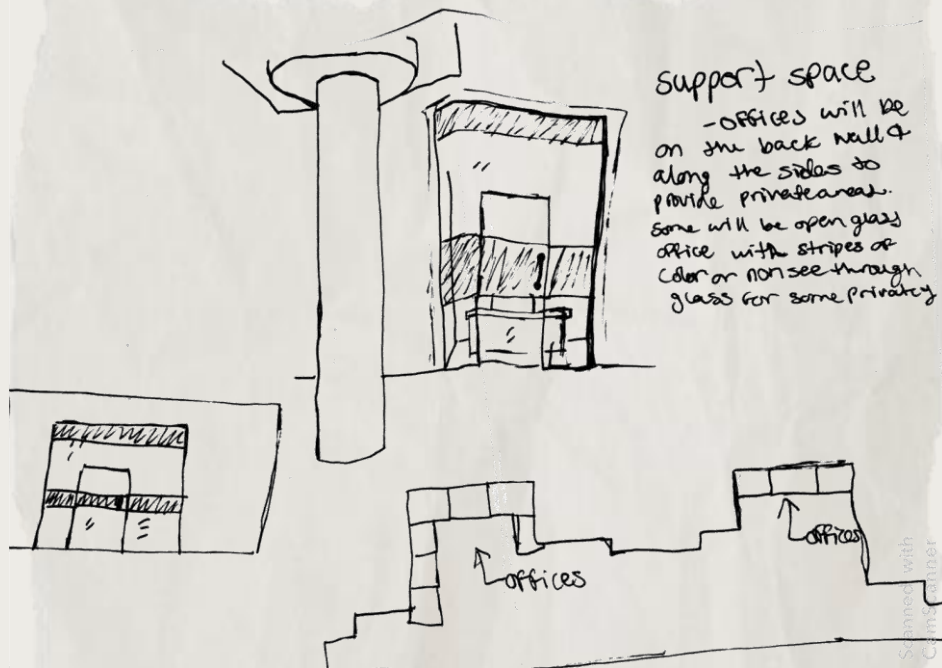 support space
-offices will be
on the back wall &
along the sides to
provide private areas.
some will be open glass
office with stripes of
color or non see through
glass for some privatcy
offices
offices
Scanned with
CamScanner